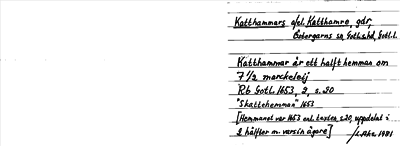 Katthammars efel. Katthamre, gdr,
Östergarns sn, Gotl.s hd, Gotl.l.
Katthammar är ett halft hemman om
7½ marckeleij
Rb Gotl. 1653, 2, s.20
"Skattehemman" 1653
[Hemmanet var 1653 enl. texten, s.20, uppdelat i
2 hälfter m. varsin ägare]
1981